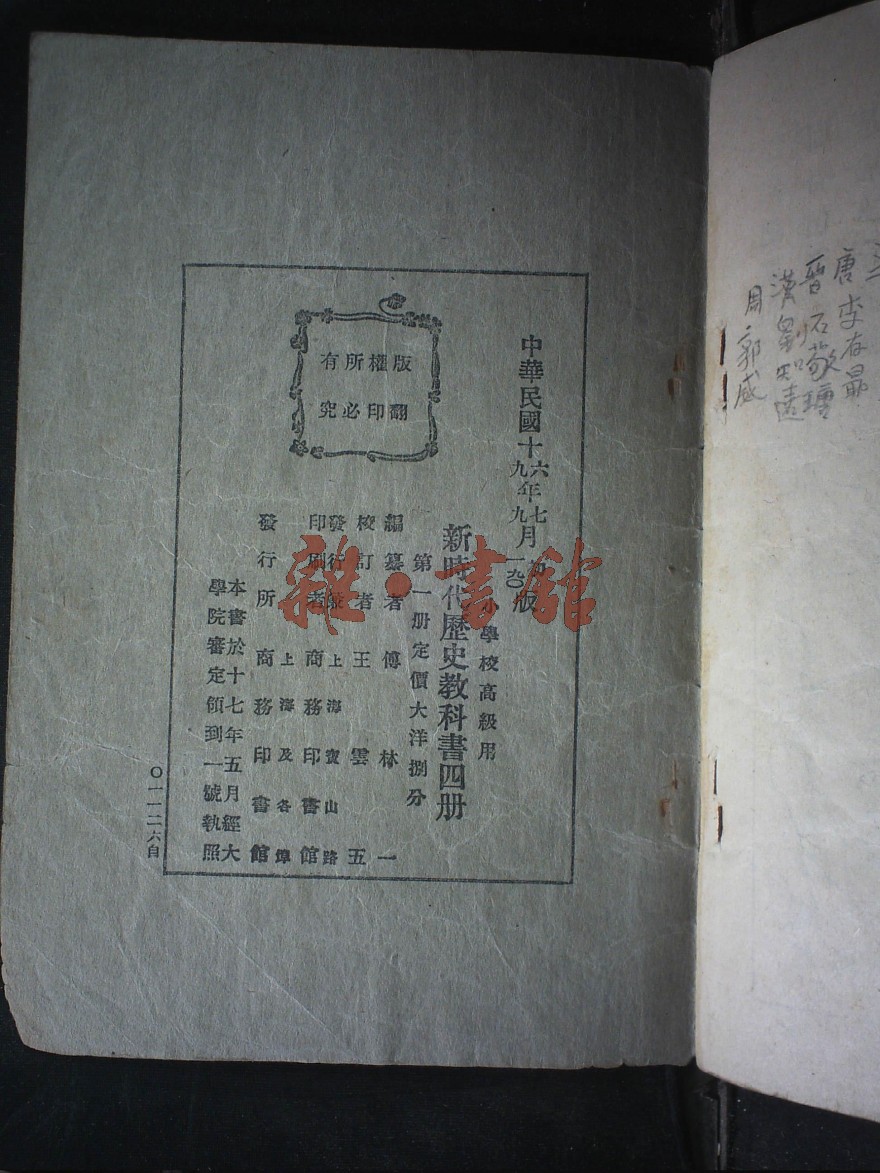 唐李存勗
晉石敬瑭
漢劉知遠
周郭威
中華民國十六年七月初版
九 九
小學校高級用
新時代歷史教科書四册
第一册定價大洋捌分
編纂者 傅林一
校訂者 王雲五
發行兼 上海寶山路
印刷者 商務印書館
上海及各埠
發行所 商務印書館
本書於十七年五月經大
學院審定領到一號執照
版權所有
翻印必究
〇一一二六自
雜·書館